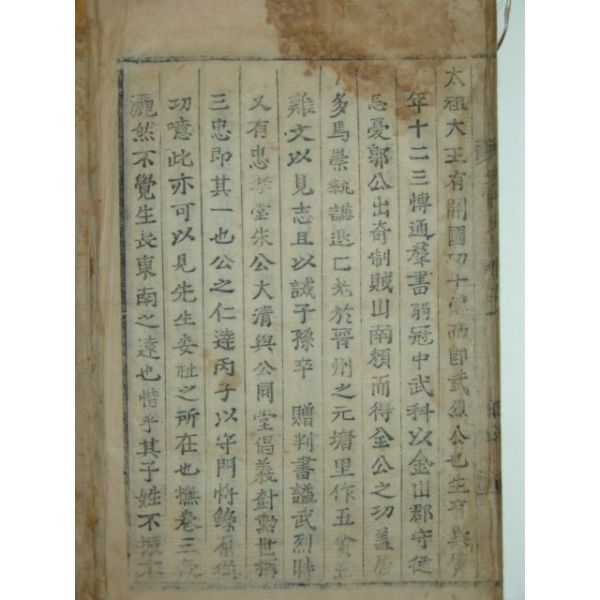 太祖大王有開國功十傳而卽武烈公也生有異質
年十二三博通羣書弱冠中武科以金山郡守從
忘憂郭公出奇制賊山南賴而得全公之功盖居
多焉棠軌講退已老於晉州之元塘里作五
難文以見志且以誡子孫卒 贈判書謚武烈時
又有忠孝堂朱公大淸與公同堂倡義討勲世稱
三忠卽其一也公之仁達丙子以守門將錄原從
功噫此亦可以見先生委祉之所在也撫卷三
灑然不覺生長東南之遠也惜乎其子姓不振